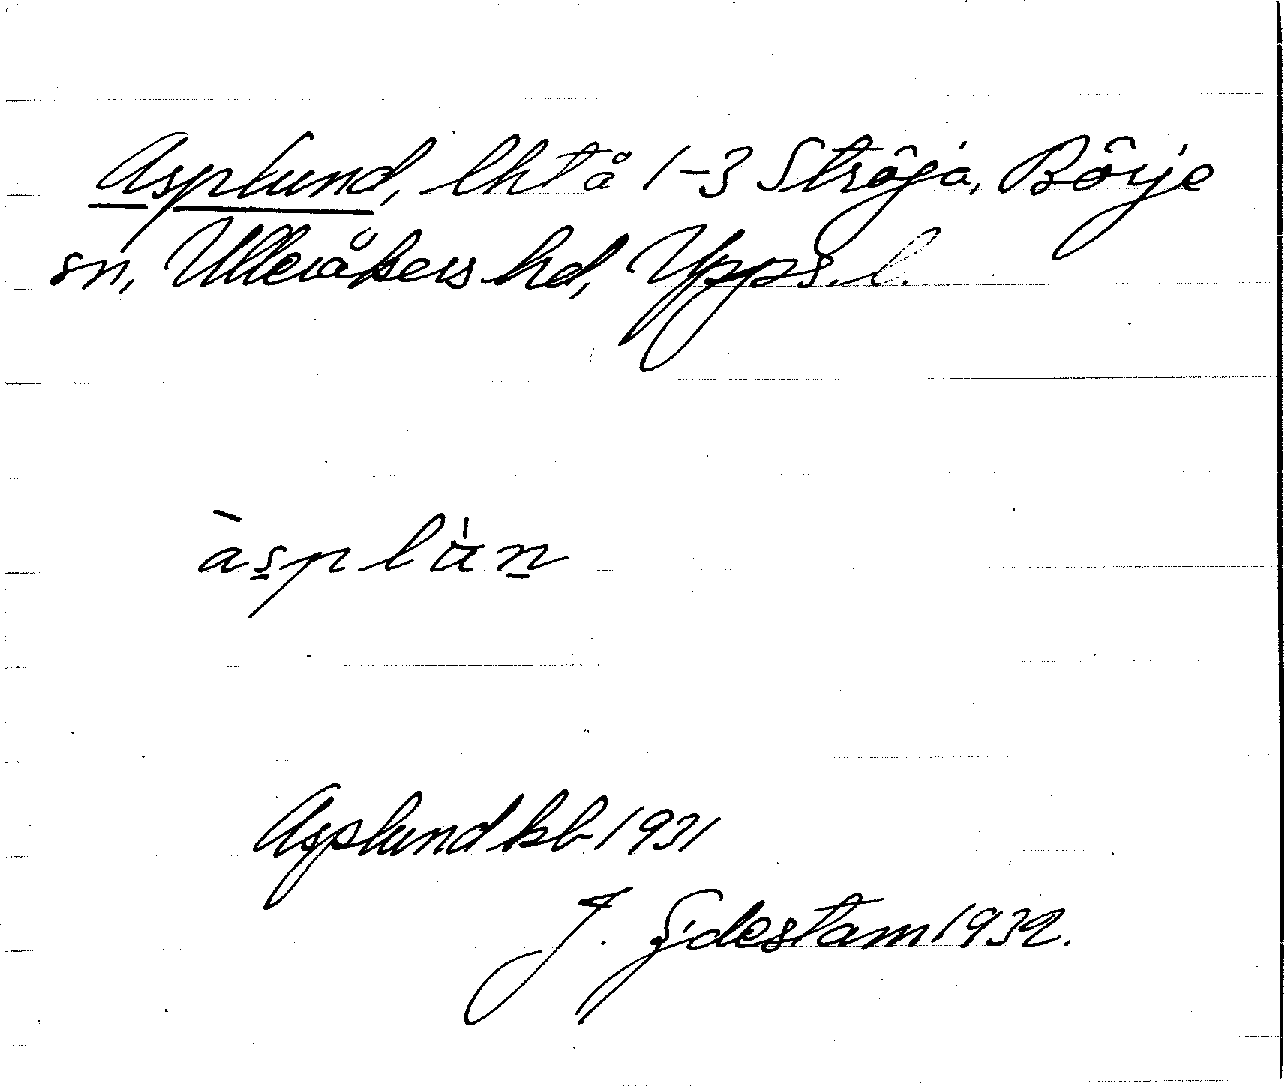 Asplund, lht å 1-3 Ströja, Börje
sn, Ulleråkers hd, Upps. l.
àsplàn
Asplund kb 1931
J. Sjdestam 1932.